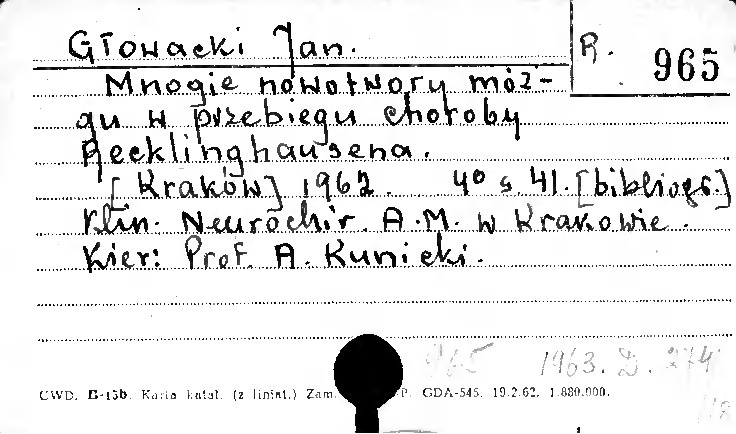 Głowacki Jan.
R. 965
Mnogie nowotwory móz-
gu w przebiegu choroby
Recklinghausena.
[Kraków] 1962. 4° s. 41. [bibliogr.]
Klin. Neurochir. A.M. w Krakowie.
Kier: Prof. A. Kunicki.
965 1963. D. 274
CWD. B-15b. Karta katal. (z liniat.) Zam. P. GDA-545. 19.2.62. 1.880.000.